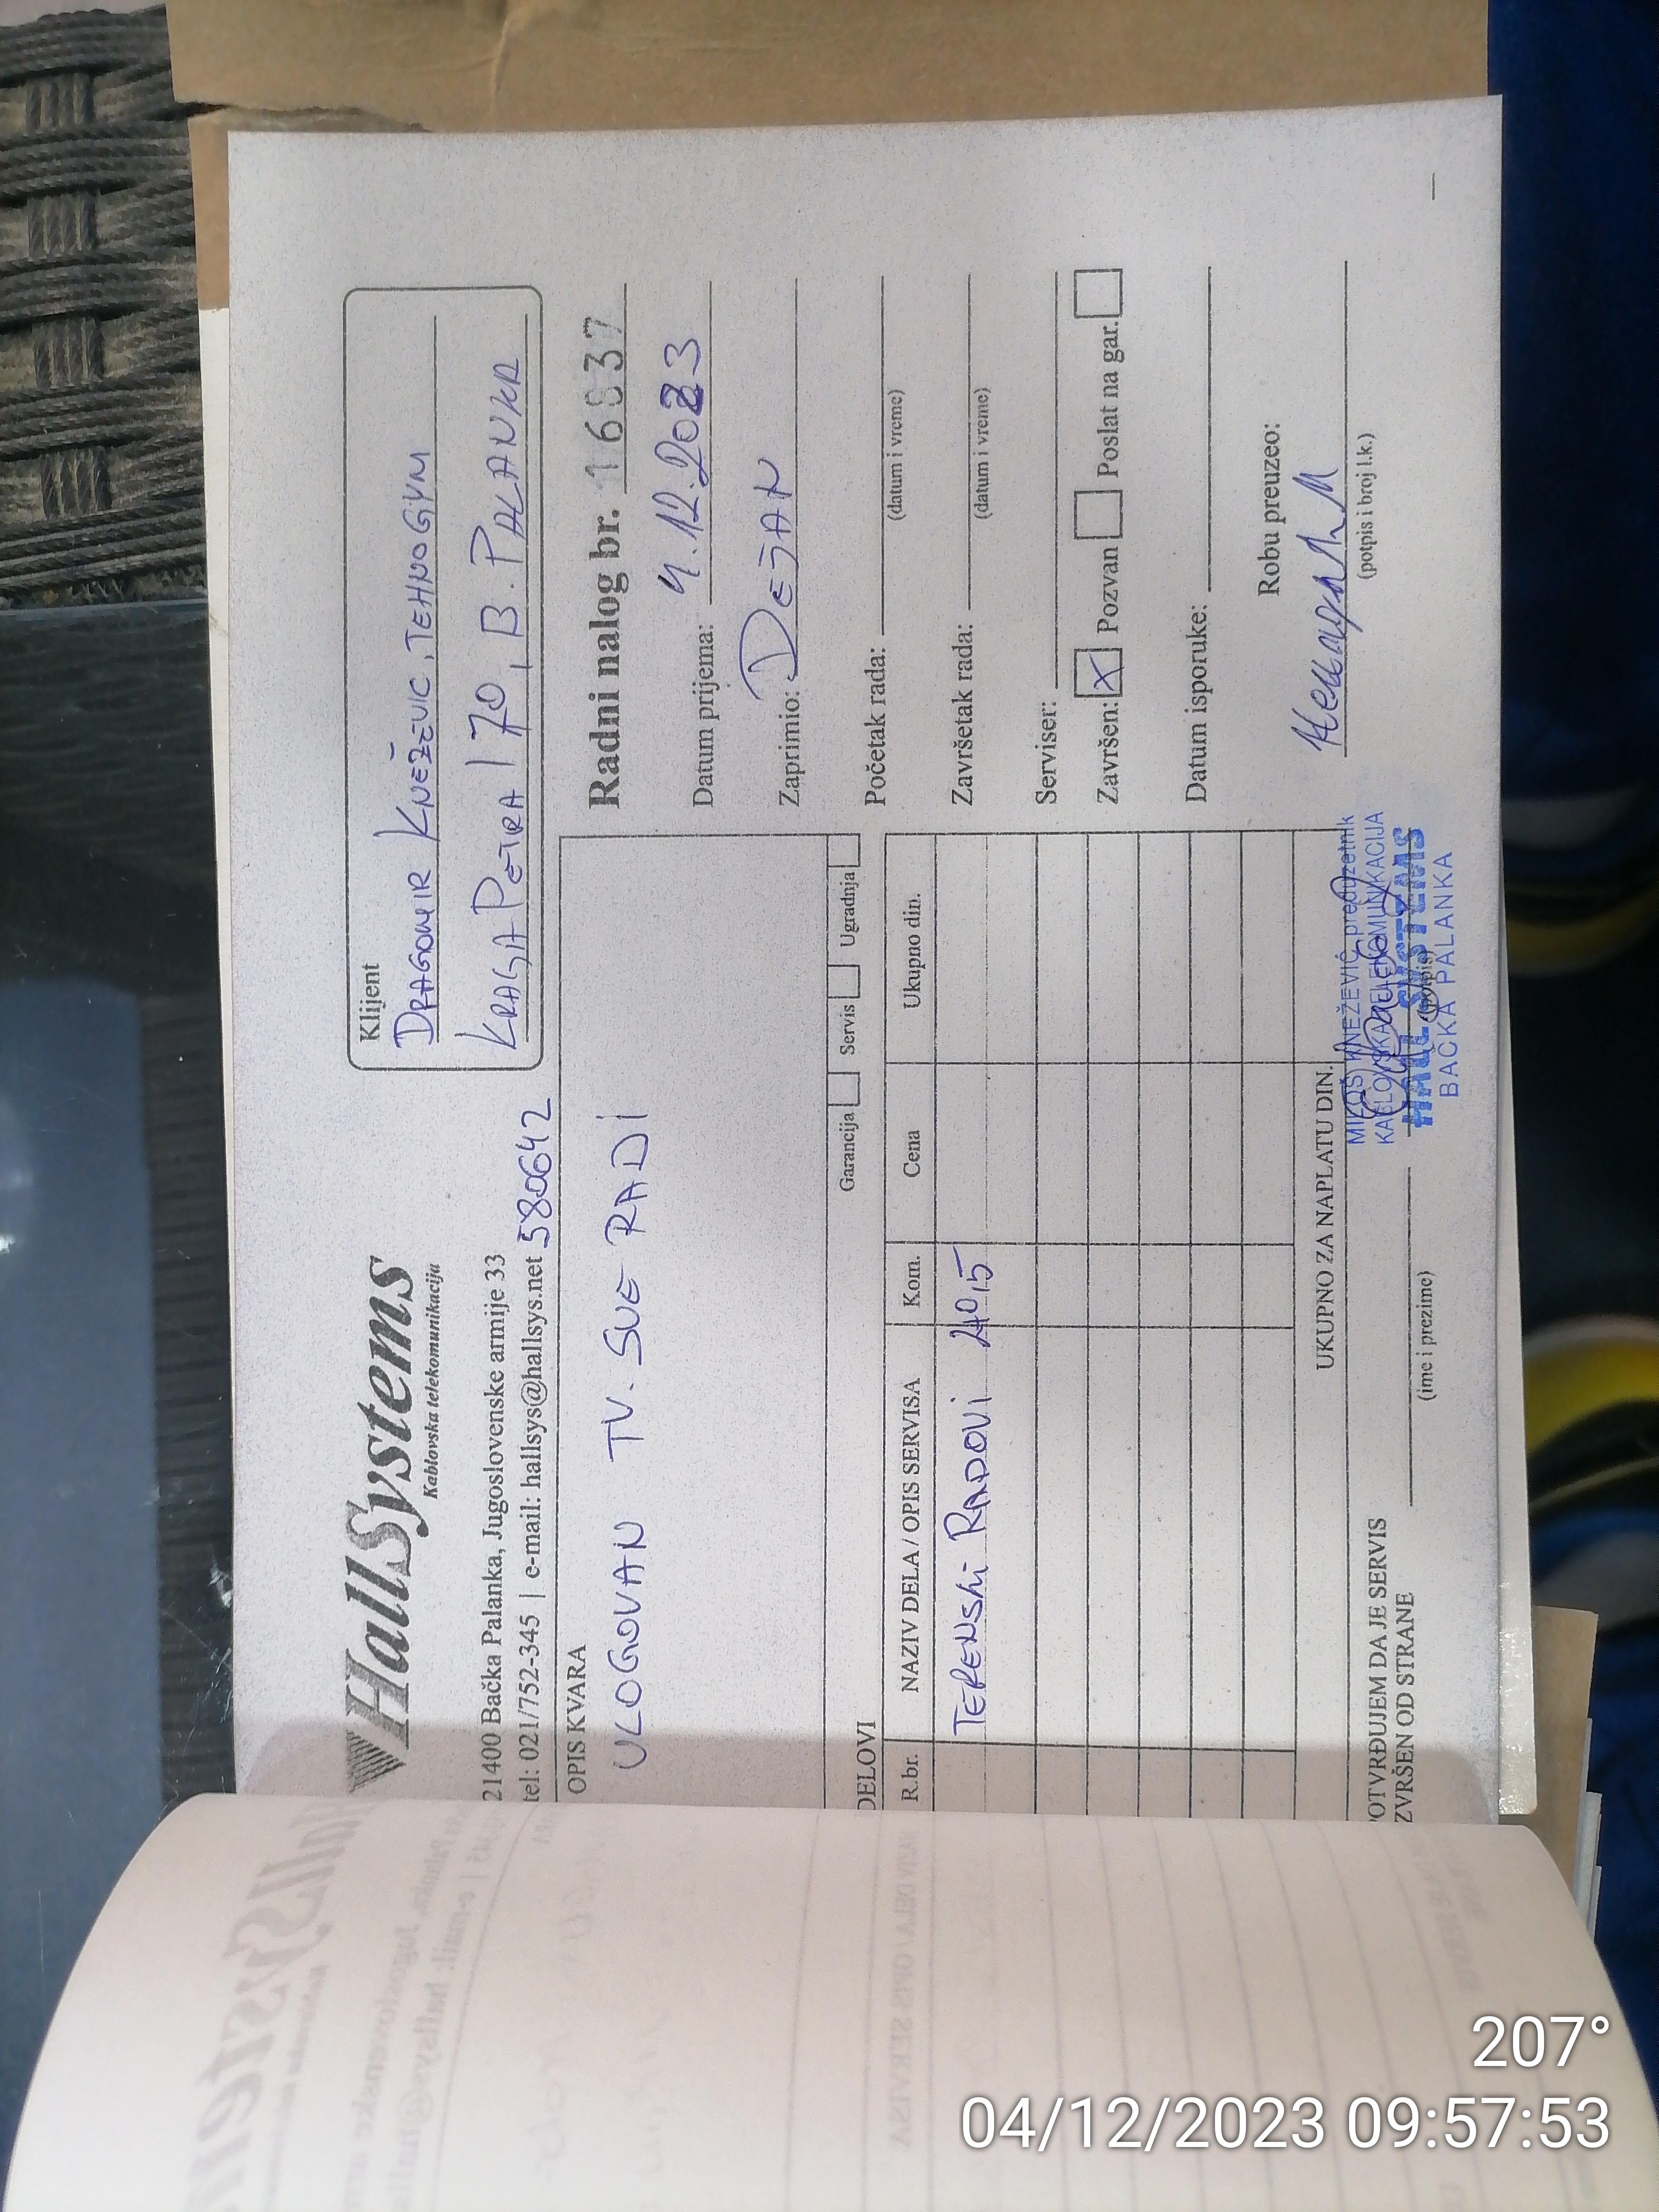 HallSystems
Kablovska telekomunikacija
21400 Bačka Palanka, Jugoslovenske armije 33
tel: 021/752-345 | e-mail: hallsys@hallsys.net
580642
Klijent
DRAGOMIR KNEŽEVIC, TEHNOGYM
KRALJA PETRA I 70, B. PALANKA
OPIS KVARA
ULOGOVAN TV. SVE RADI
Garancija Servis Ugradnja
Radni nalog br. 16837
Datum prijema: 4.12.2023
Zaprimio: DEJAN
Početak rada:
(datum i vreme)
Završetak rada:
(datum i vreme)
Serviser:
Završen: X Pozvan Poslat na gar.
Datum isporuke:
Robu preuzeo:
(potpis i broj l.k.)
DELOVI
R.br. NAZIV DELA / OPIS SERVISA Kom. Cena Ukupno din.
TERENSKI RADOVI
UKUPNO ZA NAPLATU DIN.
POTVRĐUJEM DA JE SERVIS
IZVRŠEN OD STRANE
(ime i prezime)
(potpis)
MILOŠ KNEŽEVIĆ preduzetnik
KABLOVSKA TELEKOMUNIKACIJA
HALL SYSTEMS
BAČKA PALANKA
207°
04/12/2023 09:57:53